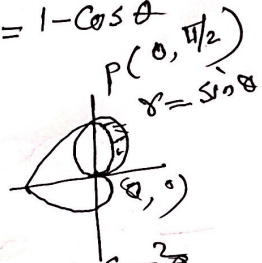 = 1-Cos θ
P(0, π/2)
r = sin θ
(2, 0)